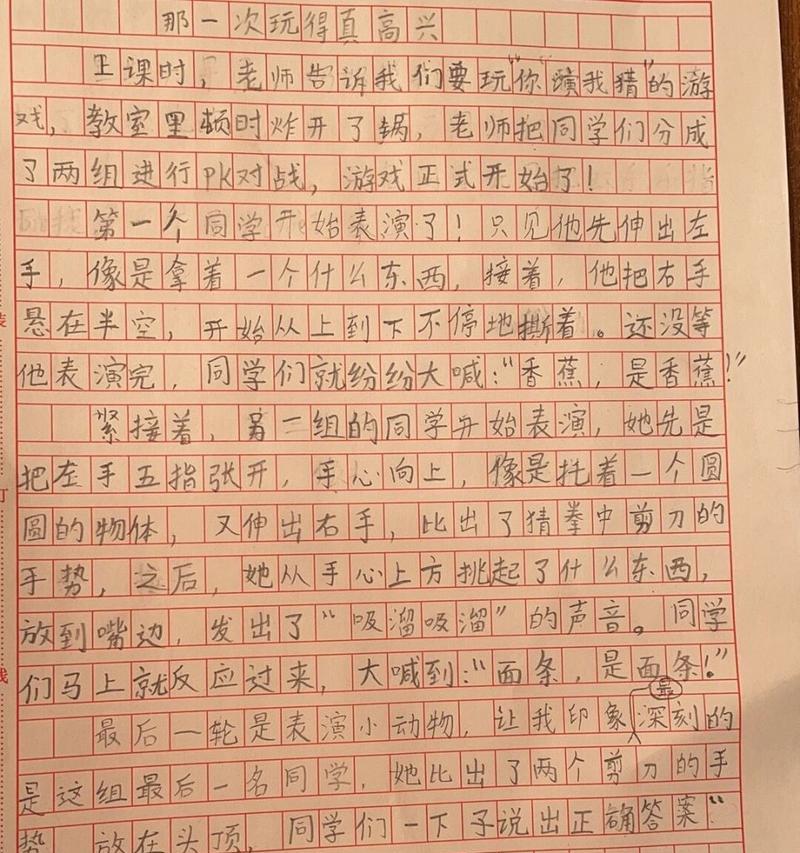 那一次玩得真高兴
上课时，老师告诉我们要玩“你演我猜”的游
戏，教室里顿时炸开了锅，老师把同学们分成
了两组进行PK对战，游戏正式开始了！
第一个同学开始表演了！只见他先伸出左
手，像是拿着一个什么东西，接着，他把右手
悬在半空，开始从上到下不停地撕着。还没等
他表演完，同学们就纷纷大喊：“香蕉，是香蕉！”
紧接着，另一组的同学开始表演，她先是
把左手五指张开，手心向上，像是托着一个圆
圆的物体，又伸出右手，比出了猜拳中剪刀的
手势，之后，她从手心上方挑起了什么东西，
放到嘴边，发出了“吸溜吸溜”的声音。同学
们马上就反应过来，大喊到：“面条，是面条！”
最后一轮是表演小动物，让我印象最深刻的
是这组最后一名同学，她比出了两个剪刀的手
势，放在头顶，同学们一下子说出正确答案“